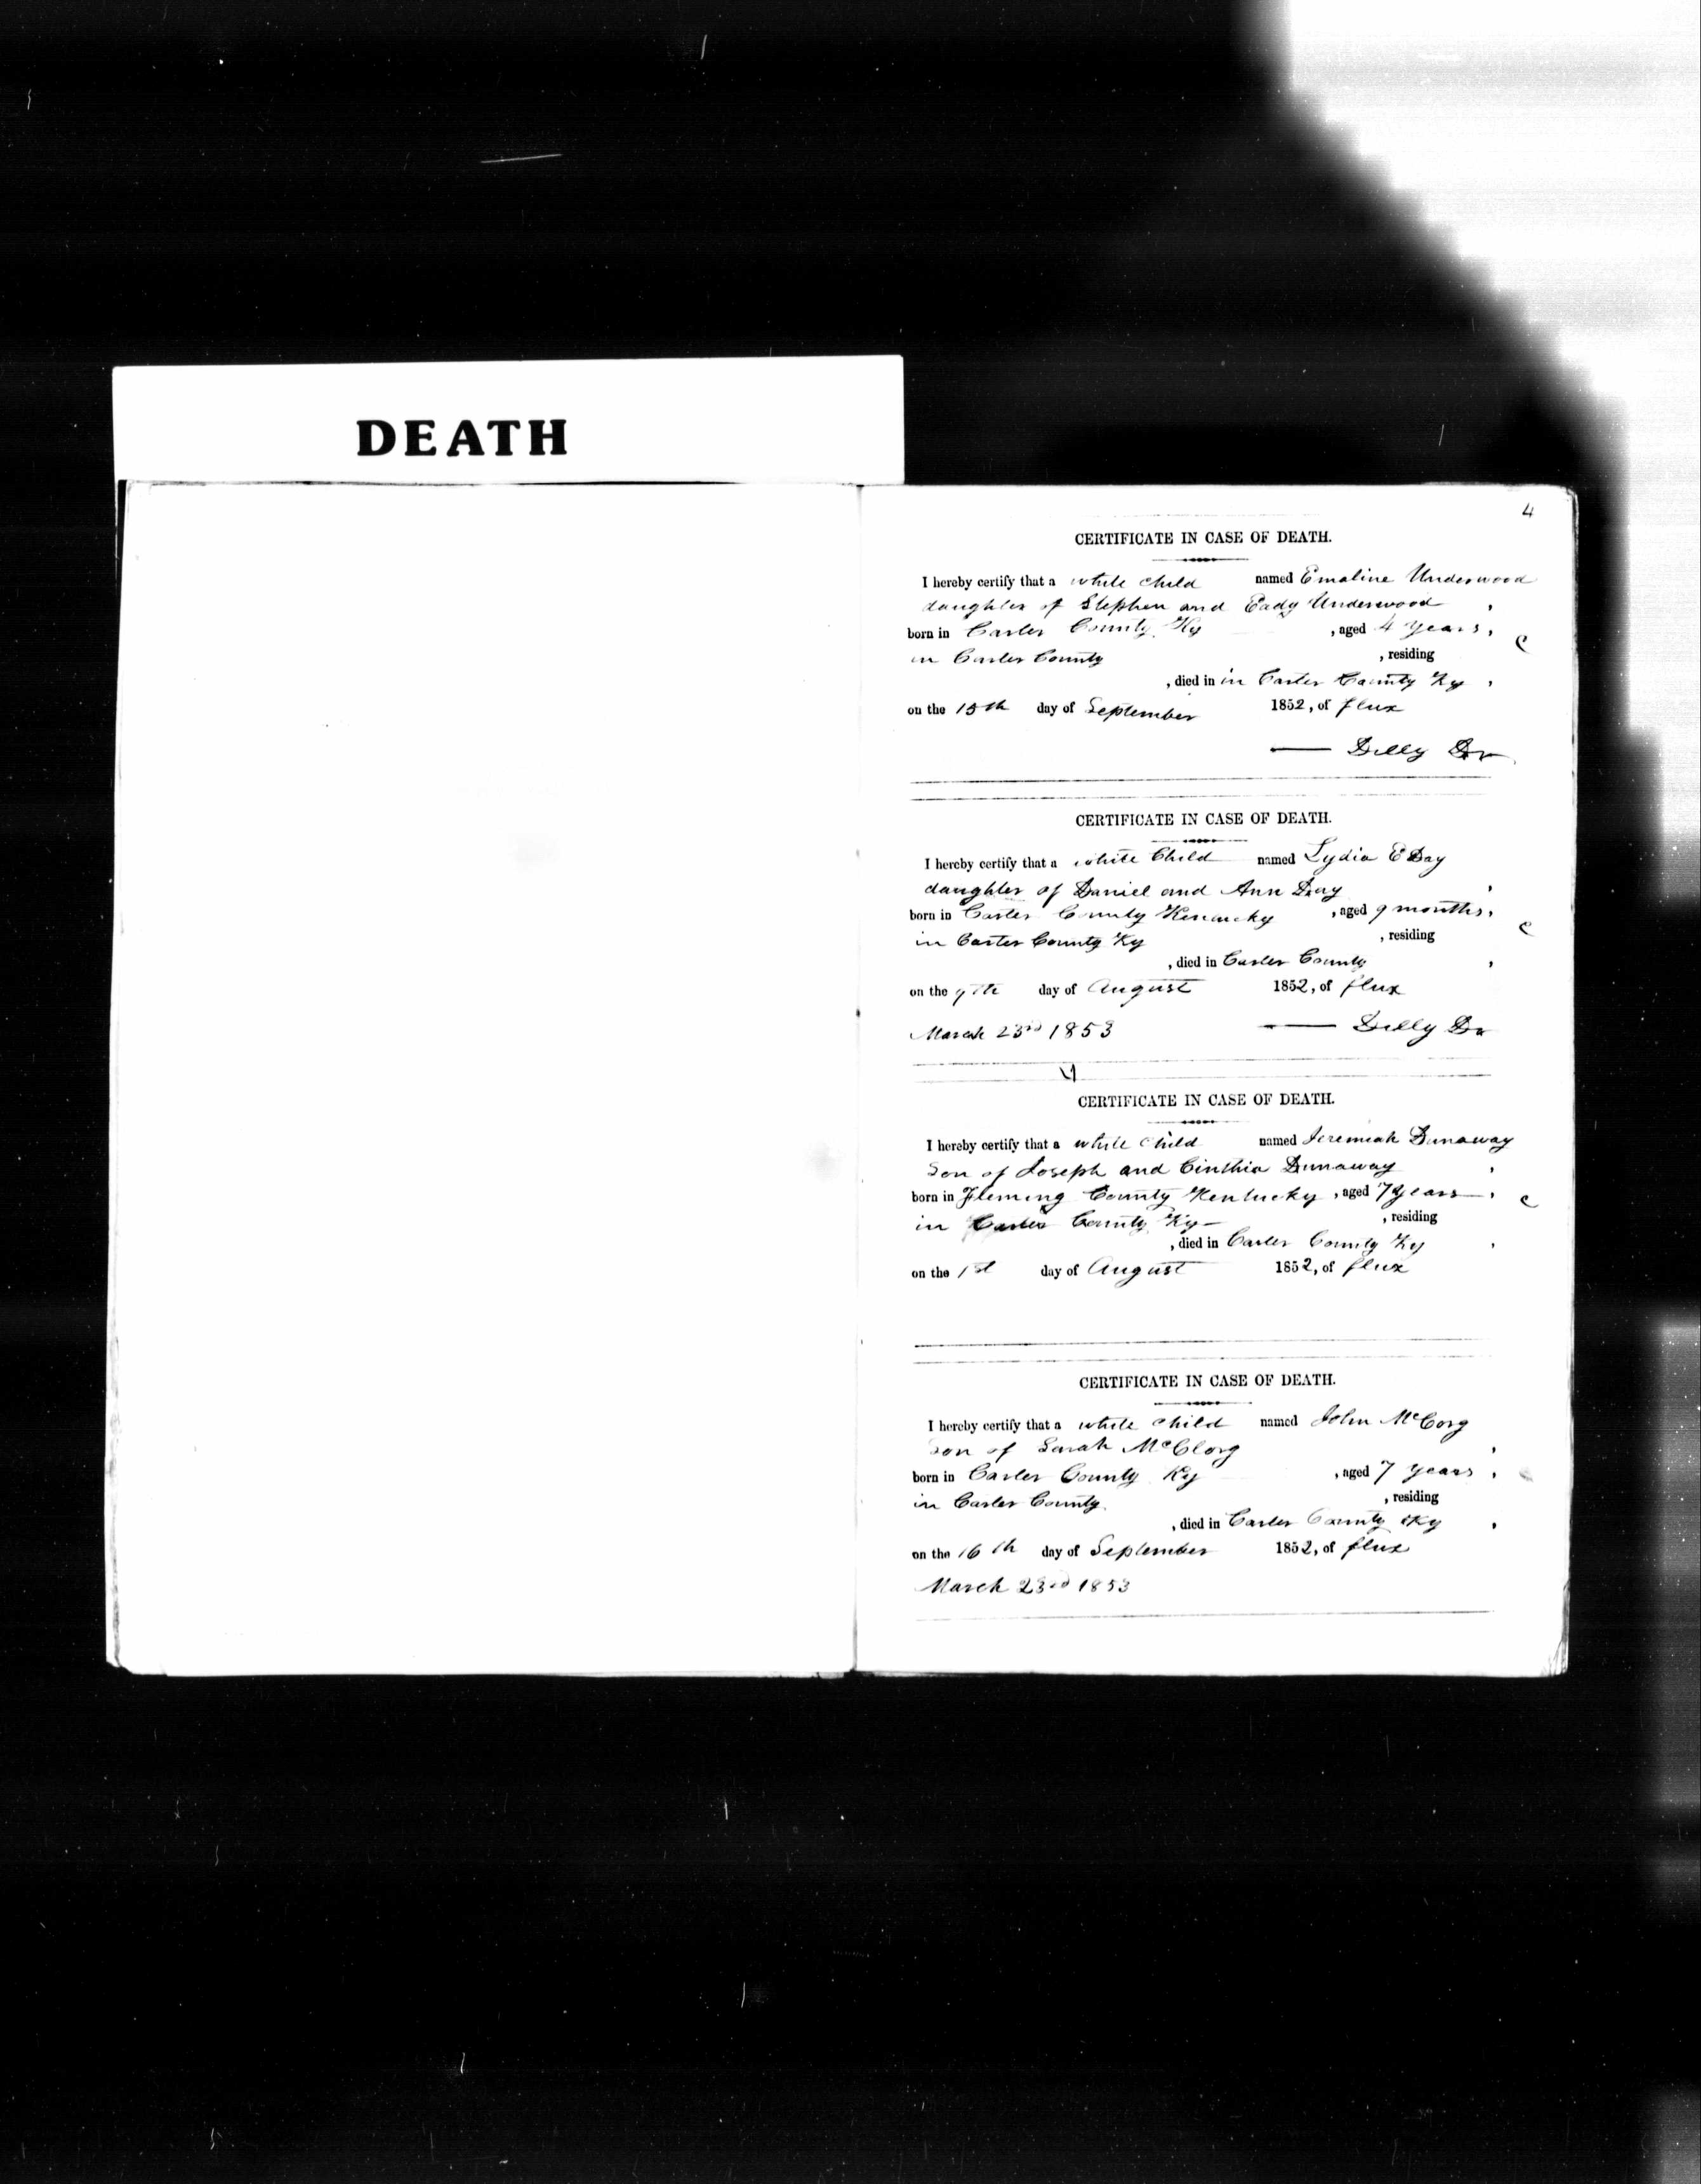 DEATH
4
CERTIFICATE IN CASE OF DEATH.
I hereby certify that a white child named Emaline Underwood
daughter of Stephen and Eady Underwood ,
born in Carter County Ky , aged 4 years,
in Carter County , residing
, died in in Carter County Ky ,
on the 15th day of September 1852, of flux
— Dilly Dr
CERTIFICATE IN CASE OF DEATH.
I hereby certify that a white Child named Lydia E Day
daughter of Daniel and Ann Day ,
born in Carter County Kenucky , aged 9 months,
in Carter County Ky , residing
, died in Carter County ,
on the 9th day of August 1852, of flux
March 23rd 1853 — Dilly Dr
CERTIFICATE IN CASE OF DEATH.
I hereby certify that a white Child named Jeremiah Dunaway
Son of Joseph and Cinthia Dunaway ,
born in Fleming County Kentucky , aged 7 years ,
in Carter County Ky , residing
, died in Carter County Ky ,
on the 1st day of August 1852, of flux
CERTIFICATE IN CASE OF DEATH.
I hereby certify that a white child named John McCorg
son of Sarah McClorg ,
born in Carter County Ky , aged 7 years ,
in Carter County , residing
, died in Carter County Ky ,
on the 16th day of September 1852, of flux
March 23rd 1853